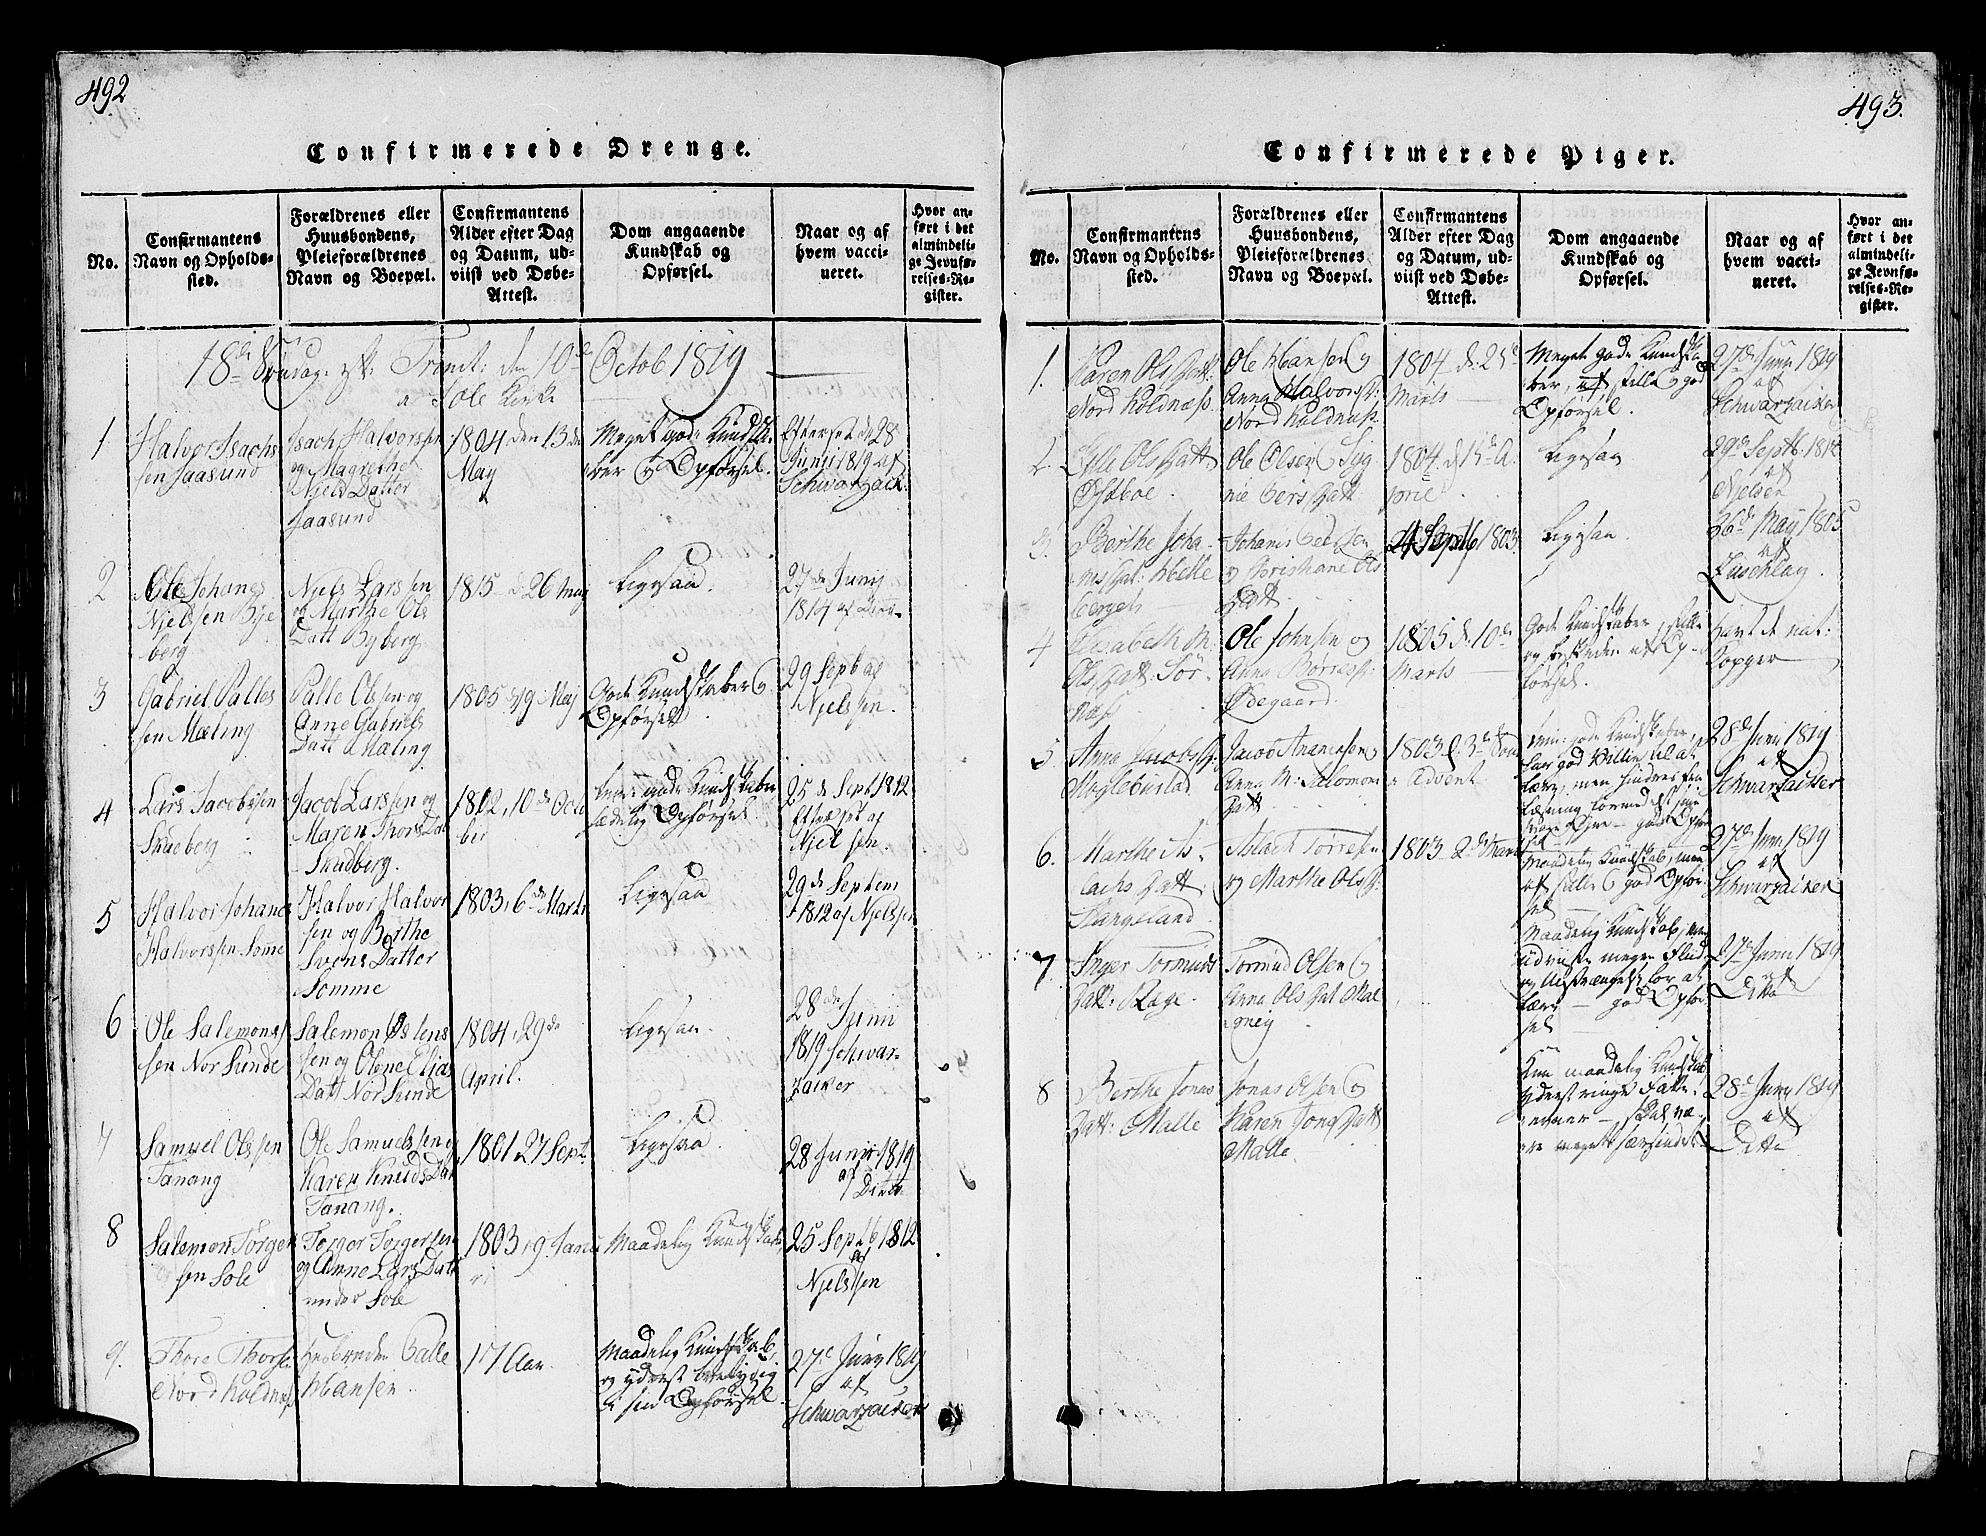 492
Confirmerede Drenge.
No.
Confirmantens
Navn og Opholds-
sted.
Forældrenes eller
Huusbondens,
Pleieforældrenes
Navn og Boepæl.
Confirmantens
Alder efter Dag
og Datum, ud-
viist ved Døbe-
Attest.
Dom angaaende
Kundskab og
Opførsel.
Naar og af
hvem vacci-
neret.
Hvor an-
ført i det
almindeli-
ge Jevnfø-
relses-Re-
gister.
18de Søndag Trinit: den 10de Octob 1819
Sole Kirke
1
Halvor Isachs
sen Jaasund
Isach Halvorssen
og Magrethe
Njelds Datter
Jaasund
1804 den 13de
May
Meget gode Kundska
ber og Opførsel
Efterset de 28
Junii 1819 af
Schwarzack:
2
Ole Johanes
Nielssen Bye
berg
Niels Larssen
og Marthe Ols
Datt Byberg
1815 d 26 Maj
Ligesaa
27de Junij
1819 af
3
Gabriel Palles
sen Mæling
Palle Olssen og
Anne Gabriels
Datt Mæling
1805 19 Maj
Gode Kundskaber og
Opførsel
29 Septb af
Njelssen.
4
Lars Jacobssen
Skudberg
Jacob Larssen og
Maren Thors Dat
Skudberg.
1802, 10de Octo
ber
gode Kundskaber
sædelig Opførsel.
25de Sept 1812
Efterset af
Njelssen.
5
Halvor Johanes
Halvorssen Some
Halvor Halvor
sen og Berthe
Svens Datter
Somme
1803, 6de Marts
Ligesaa
29de Septem
1812 af Njelssen
6
Ole Salemons
sen Nor Sunde
Salemon Østens
sen og Olene Elias
Datt Nor Sunde
1804, 29de
April.
Ligesaa.
28de Juni
1819 Schwar-
zacker
7
Samuel Olssen
Tanang
Ole Samuelssen og
Karen Knuds Dat
Tanang.
1801 27 Sept.
Ligesaa
28 Junii 1819
af Ditto
8
Salemon Torger
sen Sole
Torger Torgerssen
og Anne Lars Datt
under Sole
1803, 9. Janu
ri
Maadelig Kundskab,
25 Septb 1812
af
Njelssen
9.
Thore Thorse
Nord Koldnæs
Huusbonden Palle
Hansen
17 Aar
Maadelig Kundskab,
og yderst
i sin Opførsel
27de Juny 1819
af
Schwarzacker
493.
Confirmerede Piger.
No.
Confirmantens
Navn og Opholds-
sted.
Forældrenes eller
Huusbondens,
Pleieforældrenes
Navn og Boepæl.
Confirmantens
Alder efter Dag
og Datum, ud-
viist ved Døbe-
Attest.
Dom angaaende
Kundskab og
Opførsel.
Naar og af
hvem vacci-
neret.
Hvor an-
ført i det
almindeli-
ge Jevnfø-
relses-Re-
gister.
1.
Karen Ols Datt:
Nord Koldnæss
Ole Hansen og
Anna Halvorsd:
Nord Koldnæss
1804 d. 25de
Marts
Meget gode Kundska
ber, af stille og god
Opførsel.
27de Juny 1819
af
Schwarzacker
2.
Ols Datt:
Østboe
Ole Olsen og Syg
nie Datt
1804. d 15de A
pril
Ligesaa
29de Septb. 1812
af
Njelsen
3.
Berthe Joha
nes Dat: Helle
berget
Johanes
og Ols
Datt
24 Septb 1803.
Ligesaa
26de May 1805
af
4
Elisabeth M:
Ols Datt: Sør
næs
Ole Johnsen og
Anna
Ødegaard
1805 d. 10de
Marts
Gode Kundskaber, stille
og beskeden af Op-
førsel.
Havt de nat:
Kopper
5.
Anna Jacobs D:
Myglebustad
Jacob og
Anna M: Salomon
Datt
1803 d. 3de Sønd
i Advent
gode Kundskaber,
har god Villie til at
lære, men hindres fra
Læsning formedelst
Øjne — god Opfør
sel
28de Juni 1819
af
Schwarzacker
6.
Marthe As
lachs Datt
Stangeland
Aslach Torresen
og Marthe Olsd:
1803 2de Marts
Maadelig Kundskab, men
af stille og god Opfør
sel
27de Juny 1819
af
Schwarzacker
7
Inger Tormuds
Datt: Rage
Tormud Olsen og
Anna Ols Dat
Maadelig Kundskab, men
udviiste megen Flid
og Anstrængelse for at
lære — god Opfør
sel
27de Juny 1819
af
Ditto
8
Berthe Jonas
Datt: Malle
Jonas Olsen og
Karen Datt
Malle.
Kun maadelig Kundskab,
yderst ringe Fatte
28de Juny 1819
af
Ditto